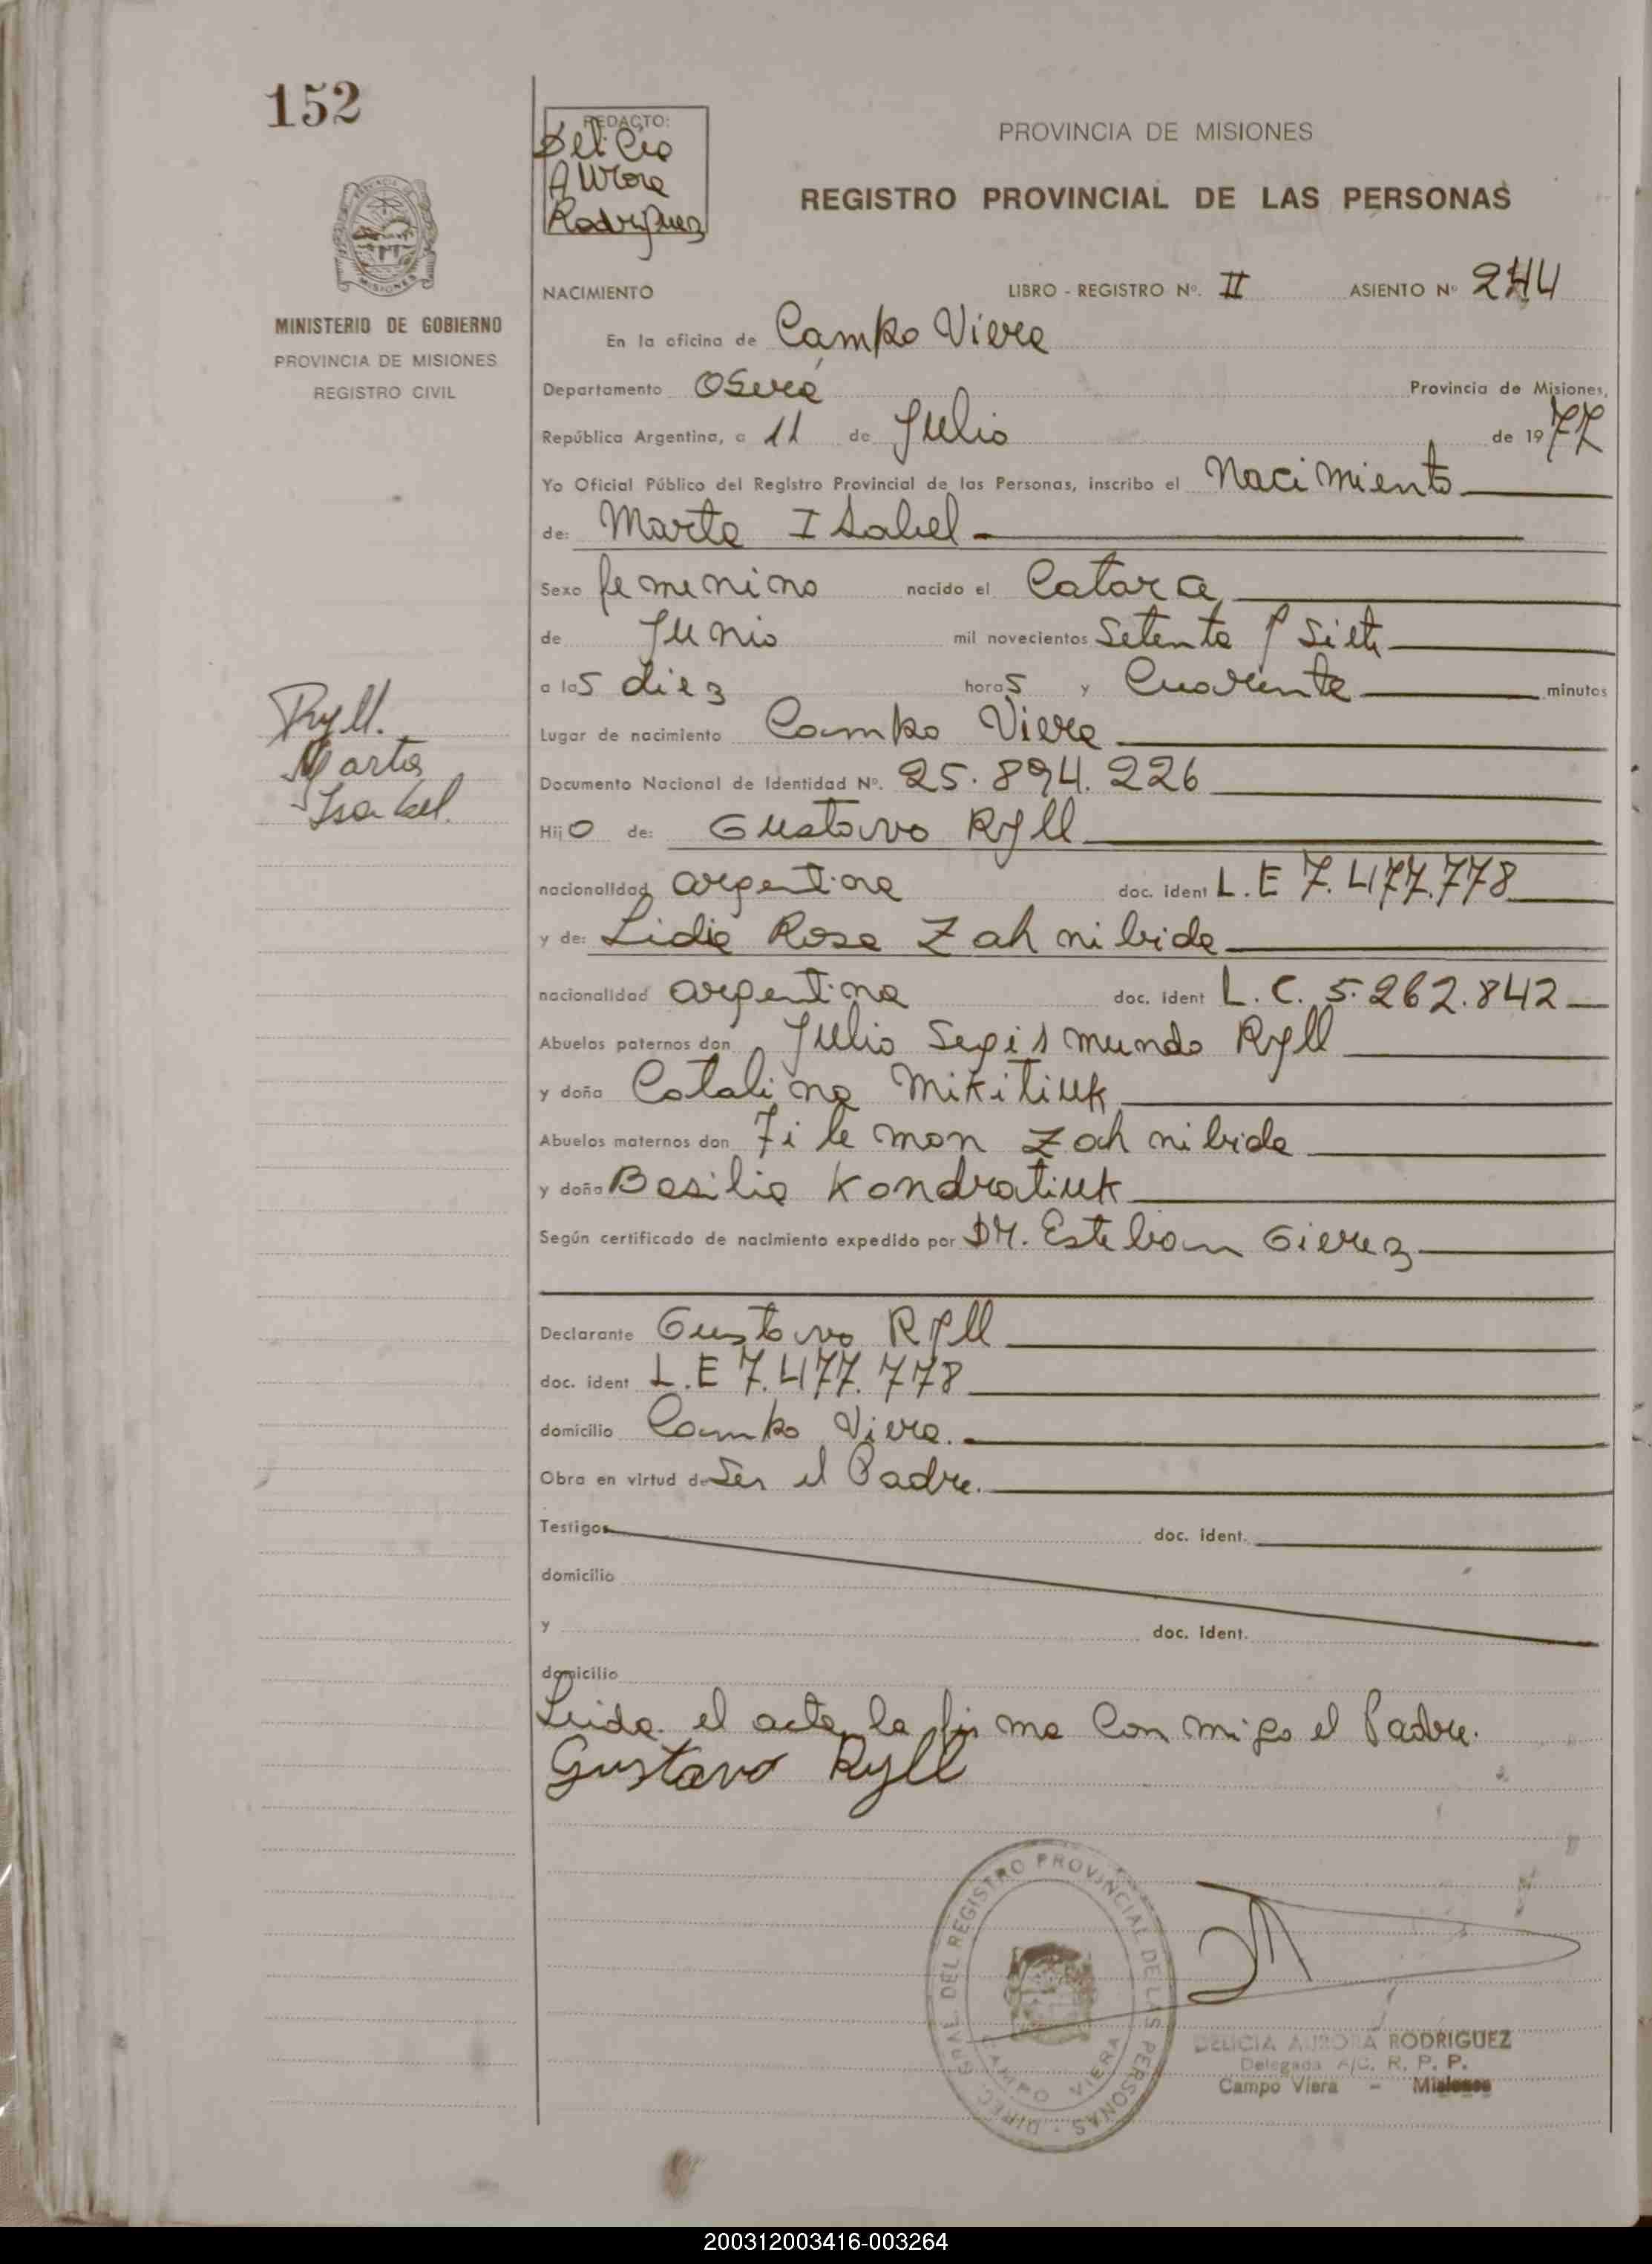 152
REDACTO:
Delicia
Aurora
Rodriguez
PROVINCIA DE MISIONES
REGISTRO PROVINCIAL DE LAS PERSONAS
MINISTERIO DE GOBIERNO
PROVINCIA DE MISIONES
REGISTRO CIVIL
NACIMIENTO LIBRO - REGISTRO Nº. II ASIENTO Nº 244
En la oficina de Campo Viera
Departamento Oberá Provincia de Misiones,
República Argentina, a 11 de Julio de 1977
Yo Oficial Público del Registro Provincial de las Personas, inscribo el Nacimiento
de: Marta Isabel
Sexo femenino nacido el Catorce
de Junio mil novecientos Setenta y Siete
a las diez horas y Cuarenta minutos
Lugar de nacimiento Campo Viera
Documento Nacional de Identidad Nº. 25.894.226
Hijo de: Gustavo Ryll
nacionalidad argentina doc. ident L.E 7.477.778
y de: Lidia Rosa Zahnibida
nacionalidad argentina doc. ident L.C. 5.262.842
Abuelos paternos don Julio Segismundo Ryll
y doña Catalina Mikitiuk
Abuelos maternos don Filemon Zahnibida
y doña Basilia Kondratiuk
Según certificado de nacimiento expedido por Dr. Esteban Gierez
Declarante Gustavo Ryll
doc. ident L.E 7.477.778
domicilio Campo Viera.
Obra en virtud de Ser el Padre.
Testigos doc. ident.
domicilio
y doc. ident.
domicilio
Leida el acta la firma conmigo el Padre.
Gustavo Ryll
Ryll.
Marta
Isabel.
DIREC. GRAL. DEL REGISTRO PROVINCIAL DE LAS PERSONAS
CAMPO VIERA
DELICIA AURORA RODRIGUEZ
Delegada A/C. R. P. P.
Campo Viera - Misiones
MISIONES
200312003416-003264